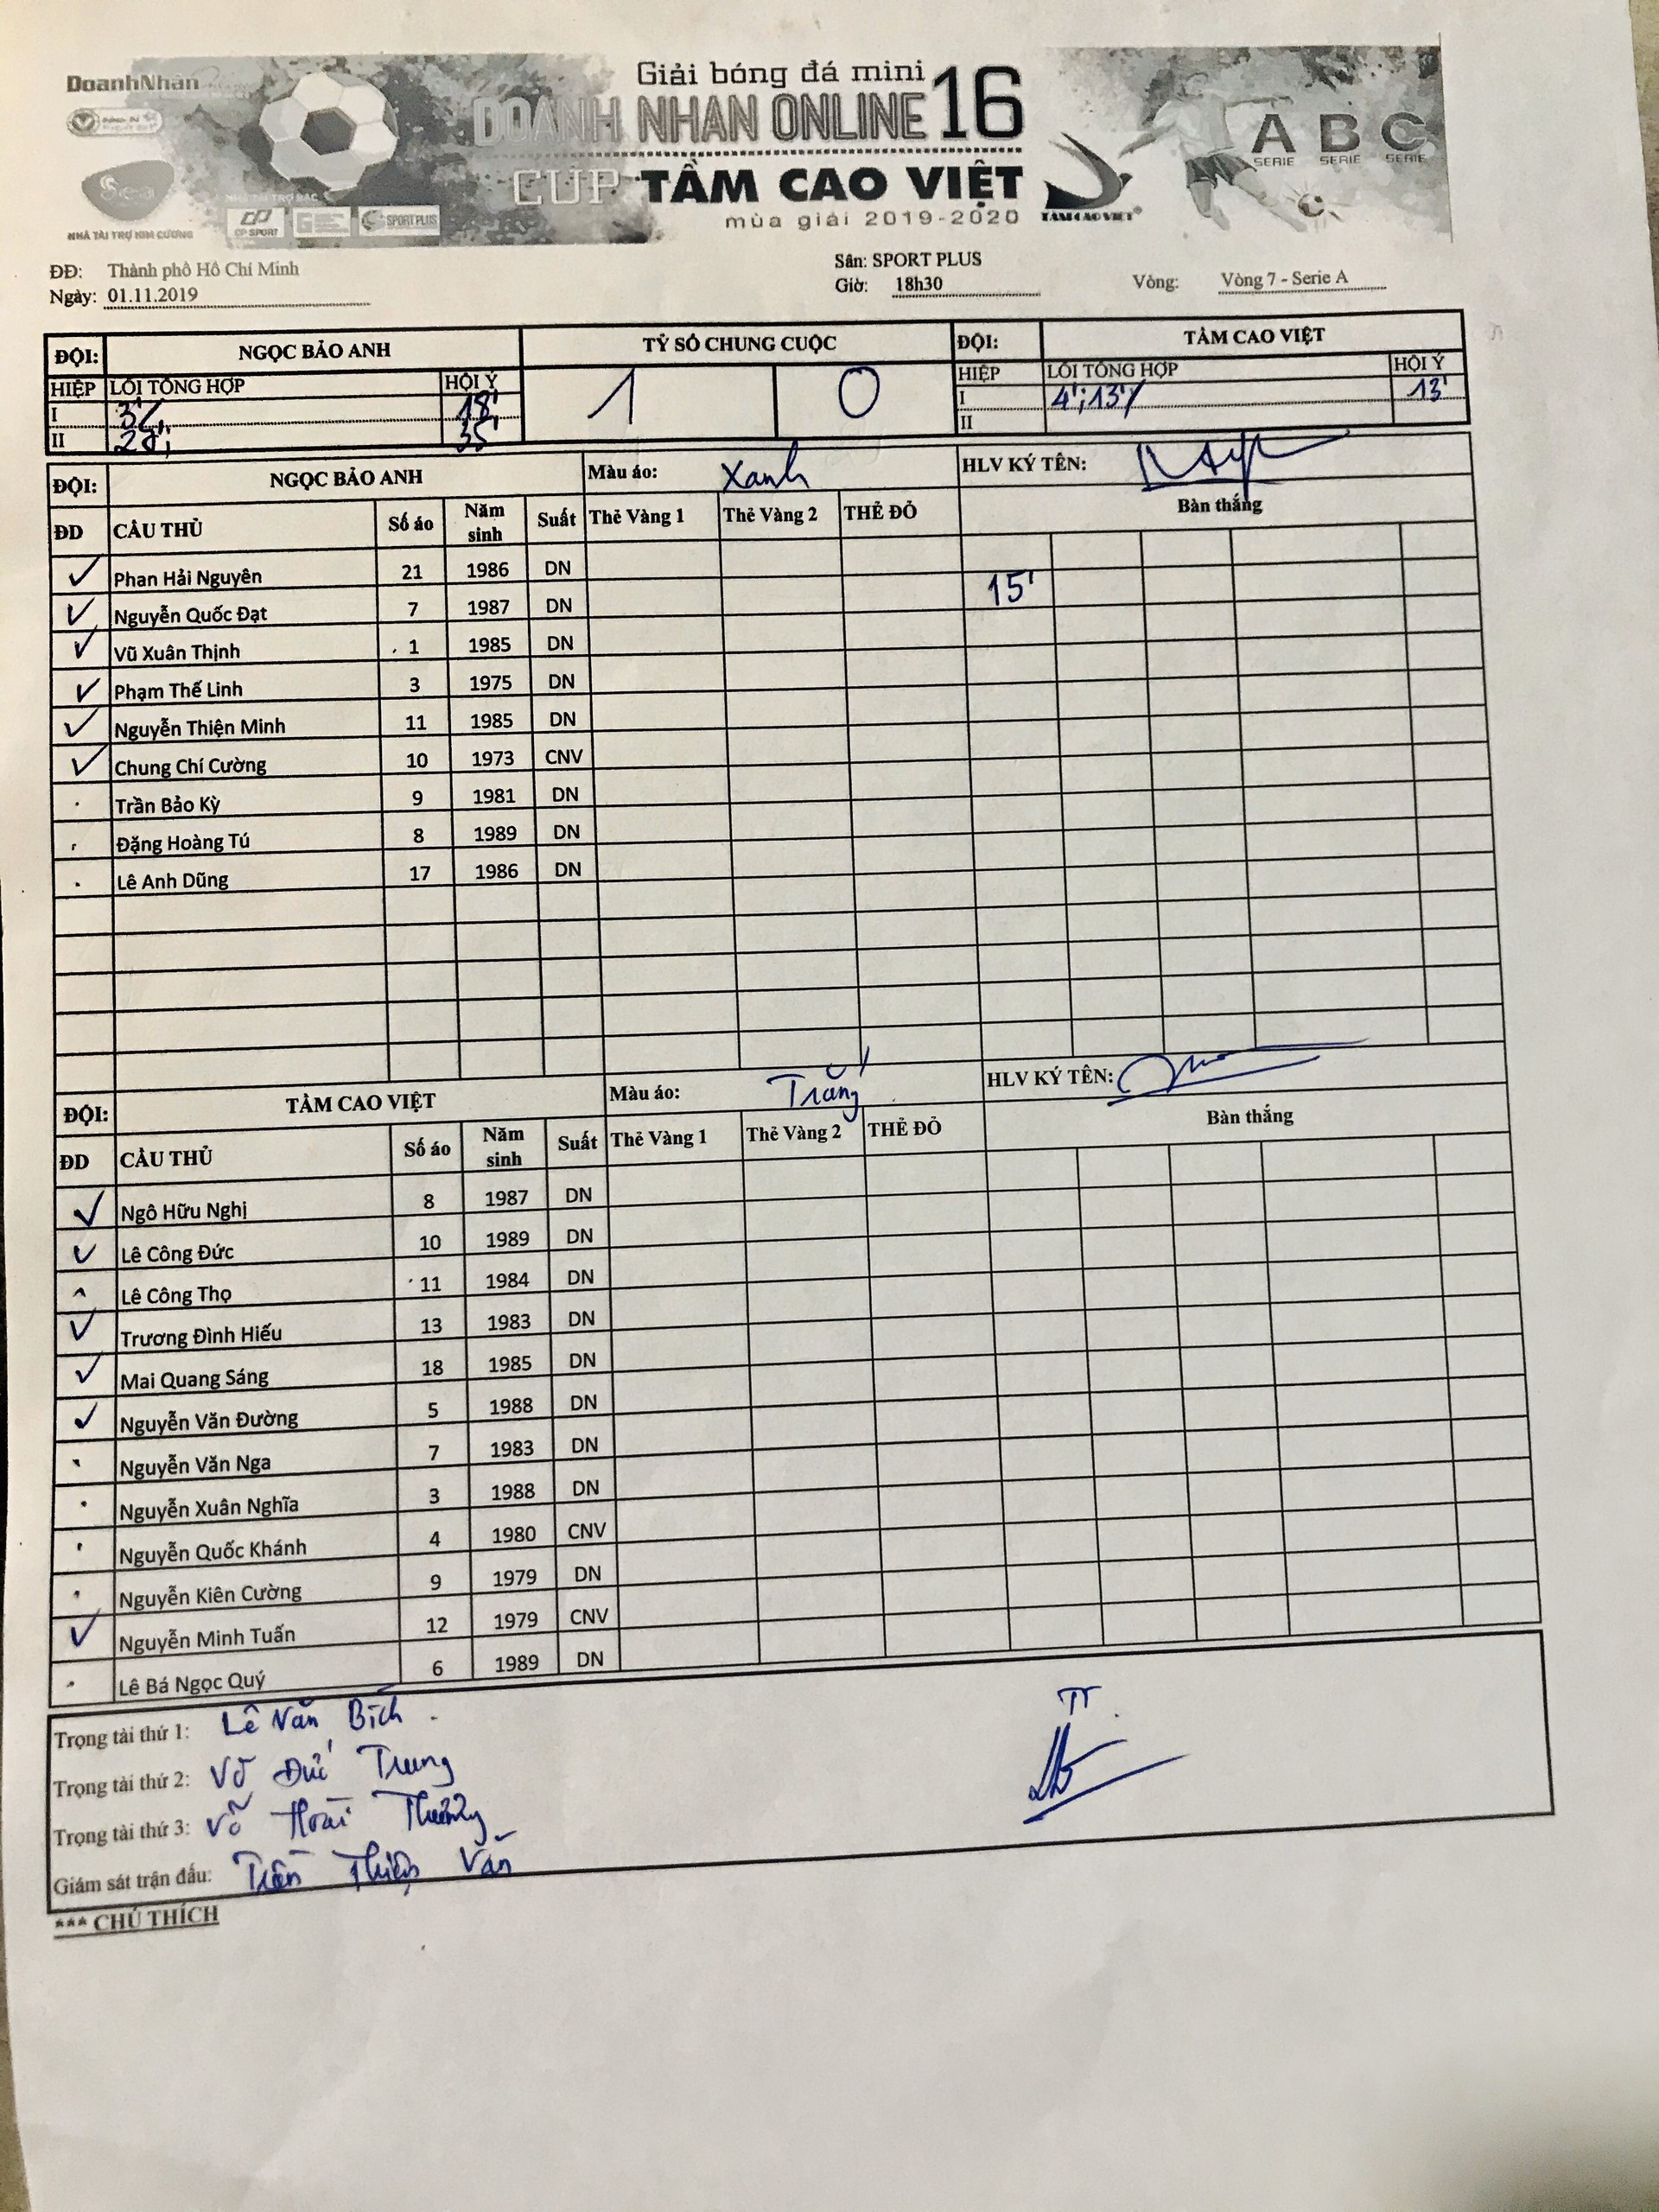 DoanhNhân
Giải bóng đá mini
DOANH NHAN ONLINE 16
CUP TẦM CAO VIỆT
mùa giải 2019-2020
NHÀ TÀI TRỢ KIM CƯƠNG
NHÀ TÀI TRỢ BẠC
CP SPORT
SPORT PLUS
TAMCAOVIET
A SERIE B SERIE C SERIE
ĐĐ: Thành phố Hồ Chí Minh
Ngày: 01.11.2019
Sân: SPORT PLUS
Giờ: 18h30
Vòng: Vòng 7 - Serie A
ĐỘI: NGỌC BẢO ANH TỶ SỐ CHUNG CUỘC ĐỘI: TẦM CAO VIỆT
HIỆP LỖI TỔNG HỢP HỘI Ý 1 0 HIỆP LỖI TỔNG HỢP HỘI Ý
I 3' 18' I 4';13' 13'
II 28' 35' II
ĐỘI: NGỌC BẢO ANH Màu áo: Xanh HLV KÝ TÊN:
ĐD CẦU THỦ Số áo Năm sinh Suất Thẻ Vàng 1 Thẻ Vàng 2 THẺ ĐỎ Bàn thắng
✓ Phan Hải Nguyên 21 1986 DN
✓ Nguyễn Quốc Đạt 7 1987 DN 15'
✓ Vũ Xuân Thịnh 1 1985 DN
✓ Phạm Thế Linh 3 1975 DN
✓ Nguyễn Thiện Minh 11 1985 DN
✓ Chung Chí Cường 10 1973 CNV
Trần Bảo Kỳ 9 1981 DN
Đặng Hoàng Tú 8 1989 DN
Lê Anh Dũng 17 1986 DN
ĐỘI: TẦM CAO VIỆT Màu áo: Trắng HLV KÝ TÊN:
ĐD CẦU THỦ Số áo Năm sinh Suất Thẻ Vàng 1 Thẻ Vàng 2 THẺ ĐỎ Bàn thắng
✓ Ngô Hữu Nghị 8 1987 DN
✓ Lê Công Đức 10 1989 DN
Lê Công Thọ 11 1984 DN
✓ Trương Đình Hiếu 13 1983 DN
✓ Mai Quang Sáng 18 1985 DN
✓ Nguyễn Văn Đường 5 1988 DN
Nguyễn Văn Nga 7 1983 DN
Nguyễn Xuân Nghĩa 3 1988 DN
Nguyễn Quốc Khánh 4 1980 CNV
Nguyễn Kiên Cường 9 1979 DN
✓ Nguyễn Minh Tuấn 12 1979 CNV
Lê Bá Ngọc Quý 6 1989 DN
Trọng tài thứ 1: Lê Văn Bích
Trọng tài thứ 2: Võ Đức Trung
Trọng tài thứ 3: Võ Hoài Thương
Giám sát trận đấu: Trần Thiện Văn
TT
*** CHÚ THÍCH